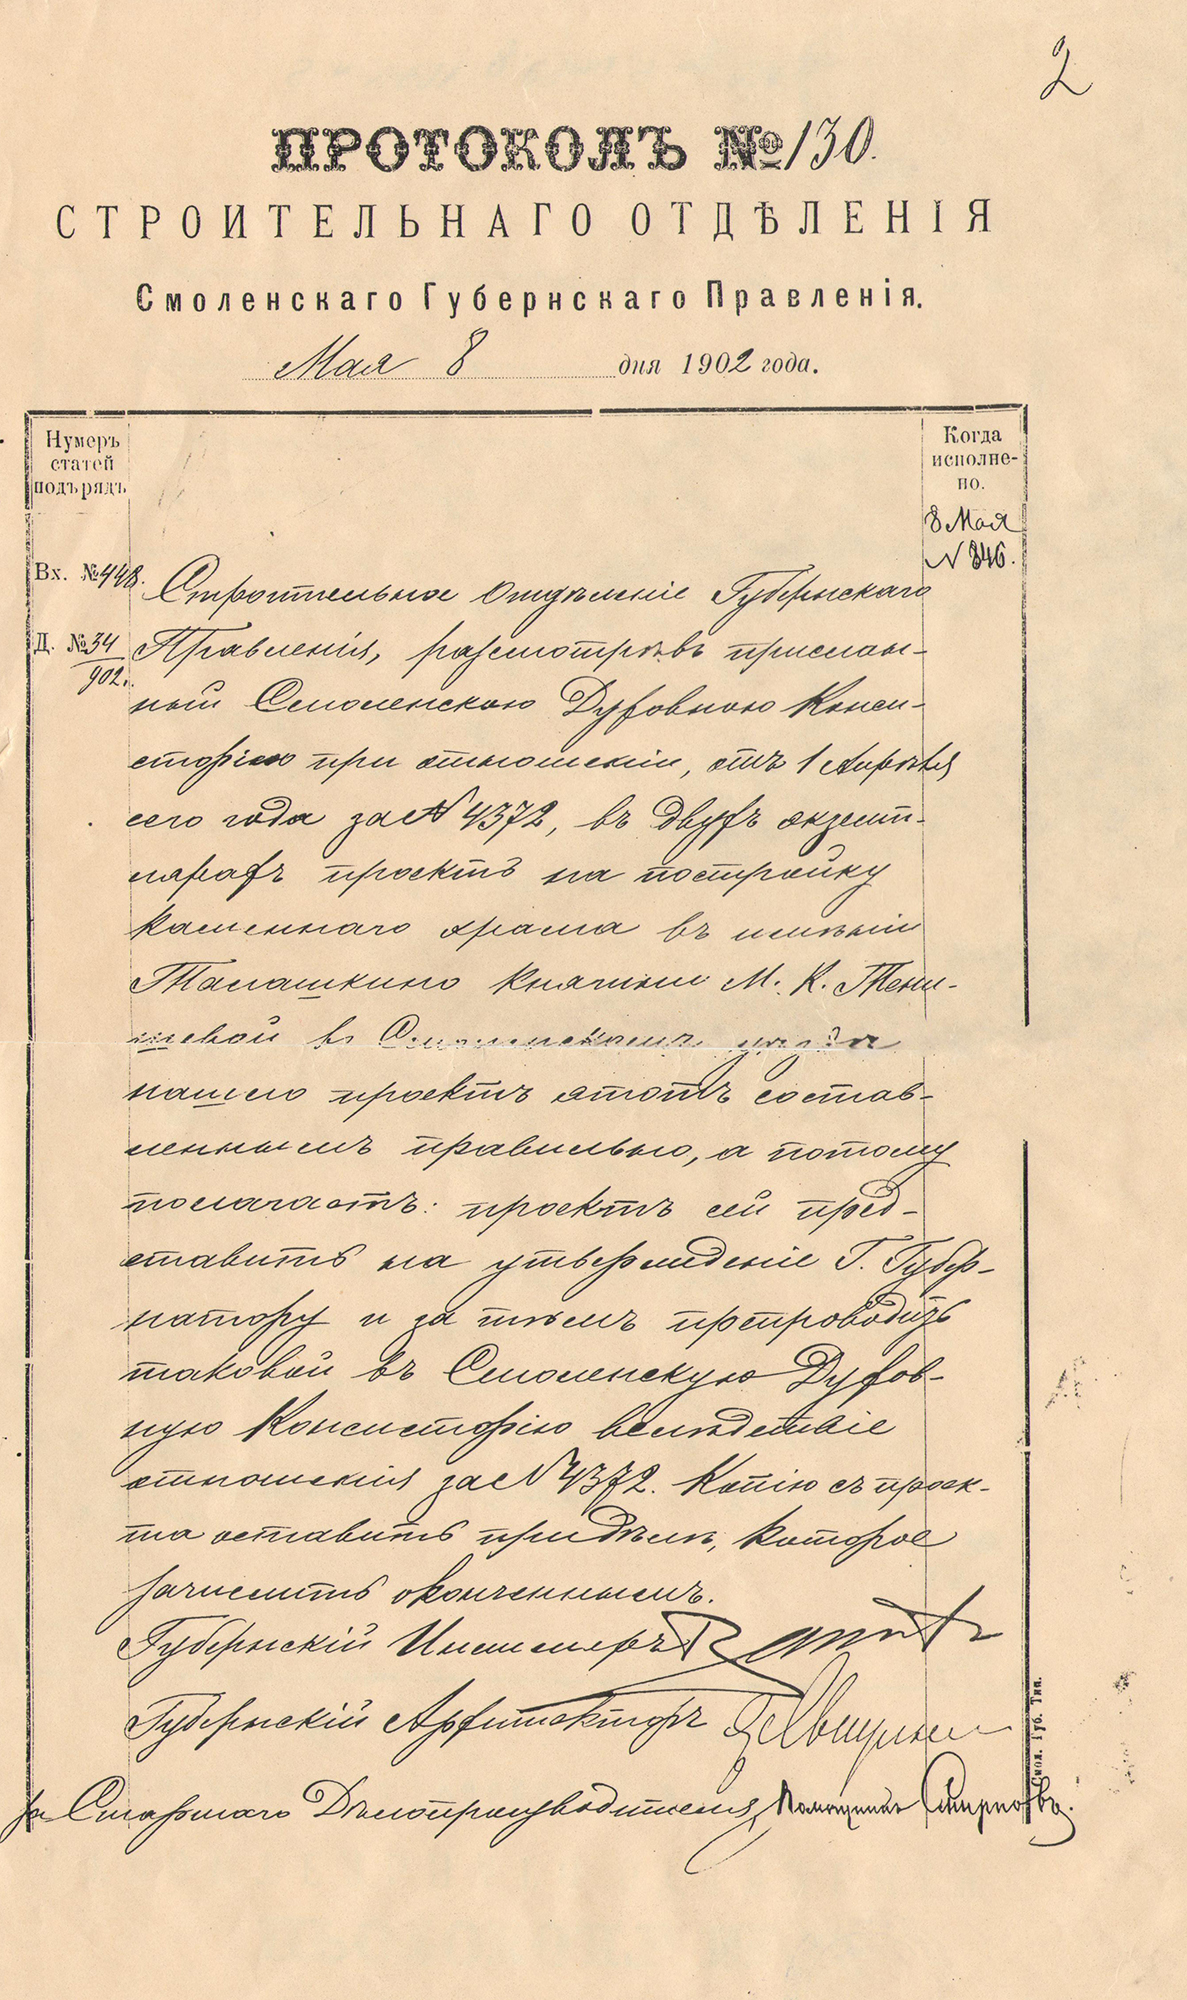 2
ПРОТОКОЛЪ № 130.
СТРОИТЕЛЬНАГО ОТДѢЛЕНІЯ
Смоленскаго Губернскаго Правленія.
Мая 8 дня 1902 года.
Нумеръ
статей
подърядъ
Когда
исполне-
но.
8 Мая
№ 846.
Вх. № 448.
Д. № 34/902.
Строительное Отдѣленіе Губернскаго
Правленія, разсмотрѣвъ прислан-
ный Смоленскою Духовною Конси-
сторіею при отношеніи, отъ 1 Апрѣля
сего года за № 4372, въ двухъ экземп-
лярахъ проектъ на постройку
каменнаго храма въ имѣніи
Талашкино княгини М. К. Тени-
шевой въ Смоленскомъ уѣздѣ
нашло проектъ этотъ состав-
леннымъ правильно, а потому
полагаетъ: проектъ сей пред-
ставить на утвержденіе Г. Губер-
натору и за тѣмъ препроводить
таковой въ Смоленскую Духов-
ную Консисторію вслѣдствіе
отношенія за № 4372. Копію съ проек-
та оставить при дѣлѣ, которое
зачислить оконченнымъ.
Губернскій Инженеръ
Губернскій Архитекторъ
за Старшаго Дѣлопроизводителя, Помощникъ Смирновъ.
Смол. Губ. Тип.